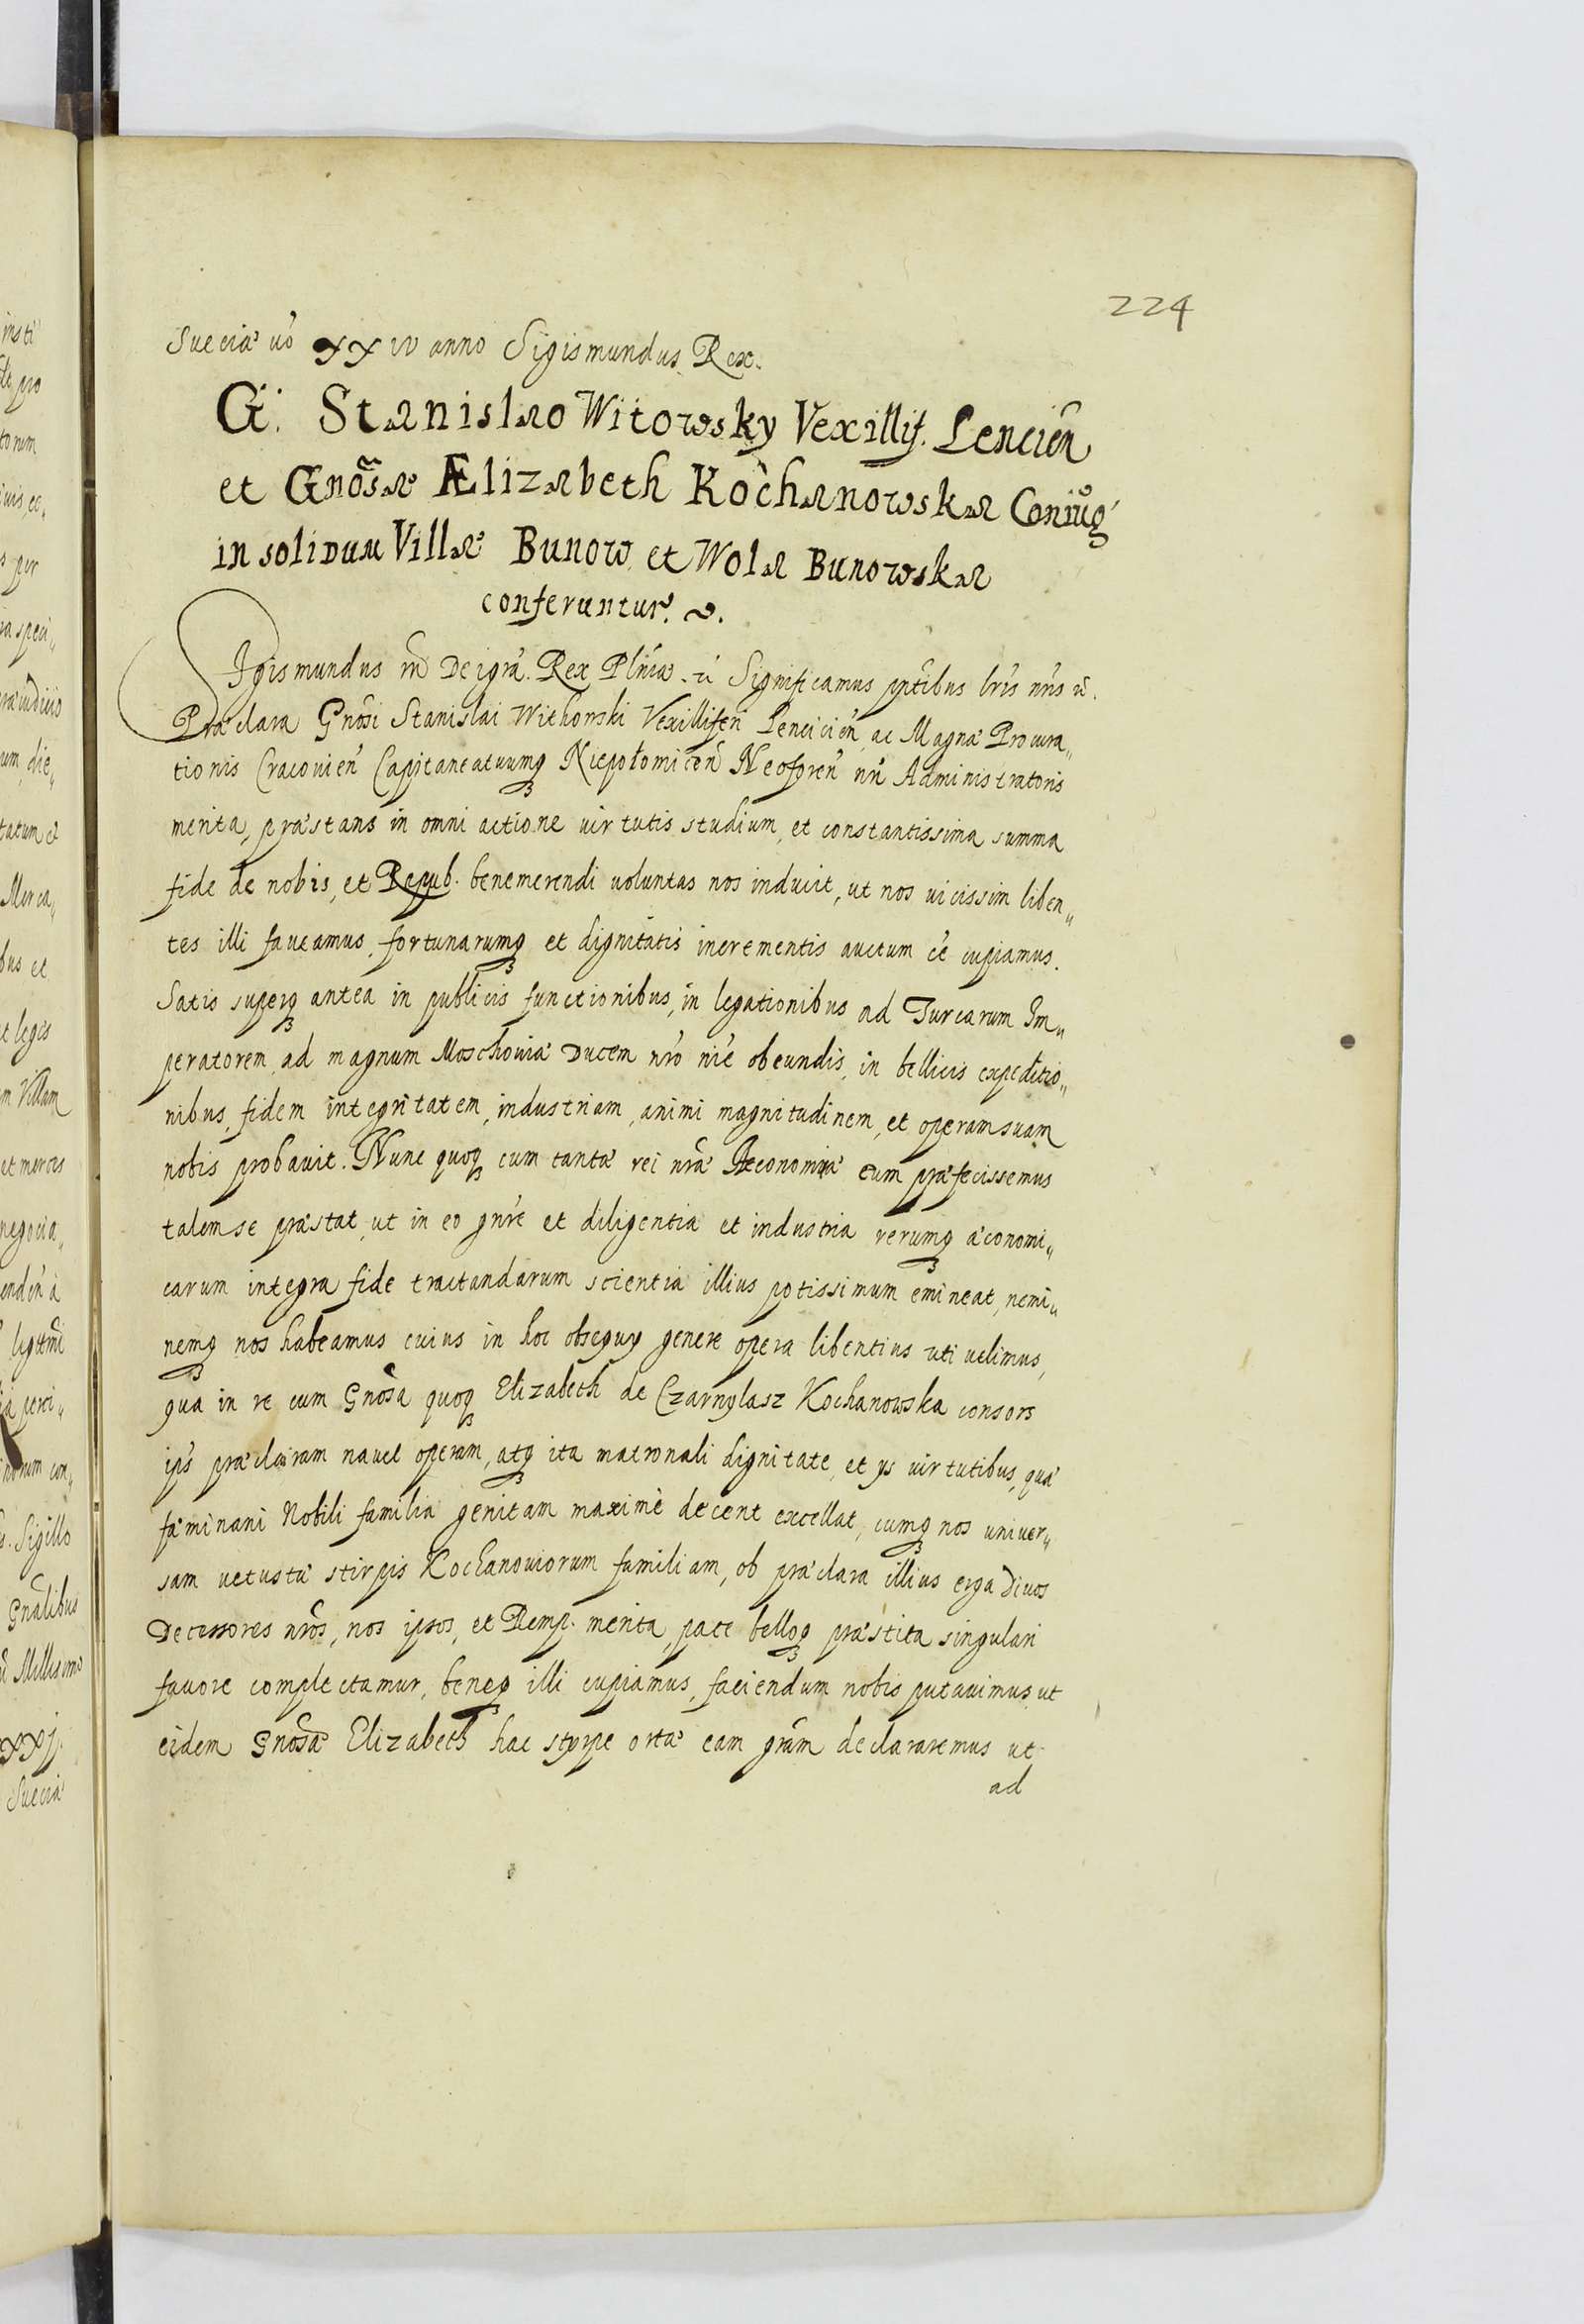 224
Sueciæ uo xxiv anno Sigismundus Rex.
G. Stanislao Witowsky Vexillif. Lencien
et Gnosæ Ælizabeth Kochanowska Coniug
in solidum Villæ Bunow et Wola Bunowska
conferuntur.
Sigismundus iii Dei gra. Rex Plniæ. ec Significamus pntibus lris nris ec.
Præclara Gnosi Stanislai Withowski Vexilliferi Lencicien, ac Magnæ Procura„
tionis Cracouien Capitaneatuumq Niepołomicen Neoforen nri Administratoris
merita, præstans in omni actione uirtutis studium, et constantissima summa
fide de nobis, et Repub. benemerendi uoluntas nos inducit, ut nos uicissim liben„
tes illi faueamus, fortunarumq et dignitatis incrementis auctum ee cupiamus.
Satis superq antea in publicis functionibus, in legationibus ad Turcarum Im„
peratorem, ad magnum Moschouiæ Ducem nro nie obeundis, in bellicis expeditio„
nibus, fidem integritatem, industriam, animi magnitudinem, et operam suam
nobis probauit. Nunc quoq cum tantæ rei nræ Æconomiæ eum præfecissemus
talem se præstat, ut in eo gnre et diligentia et industria rerumq æconomi„
carum integra fide tractandarum scientia illius potissimum emineat, nemi„
nemq nos habeamus cuius in hoc obsequy genere opera libentius uti uelimus,
qua in re cum Gnosa quoq Elizabeth de Czarnylasz Kochanowska consors
ips præclaram nauet operam, atq ita matronali dignitate, et ys uirtutibus, quæ
fæminam Nobili familia genitam maxime decent excellat, cumq nos uniuer„
sam uetustæ stirpis Kochanouiorum familiam, ob præclara illius erga Diuos
Decessores nros, nos ipsos, et Remp. merita, pace belloq præstita singulari
fauore complectamur, beneq illi cupiamus, faciendum nobis putauimus ut
eidem Gnosæ Elizabeth hac styrpe ortæ eam gram declararemus ut
ad